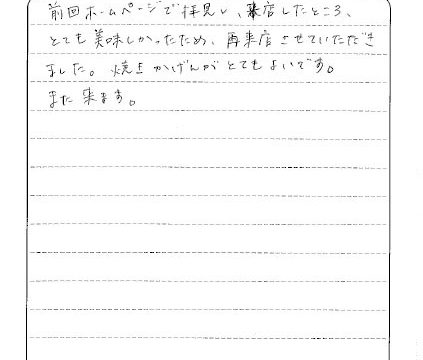 前回ホームページで拝見し、来店したところ、
とても美味しかったため、再来店させていただき
ました。焼きかげんがとてもよいです。
また来ます。